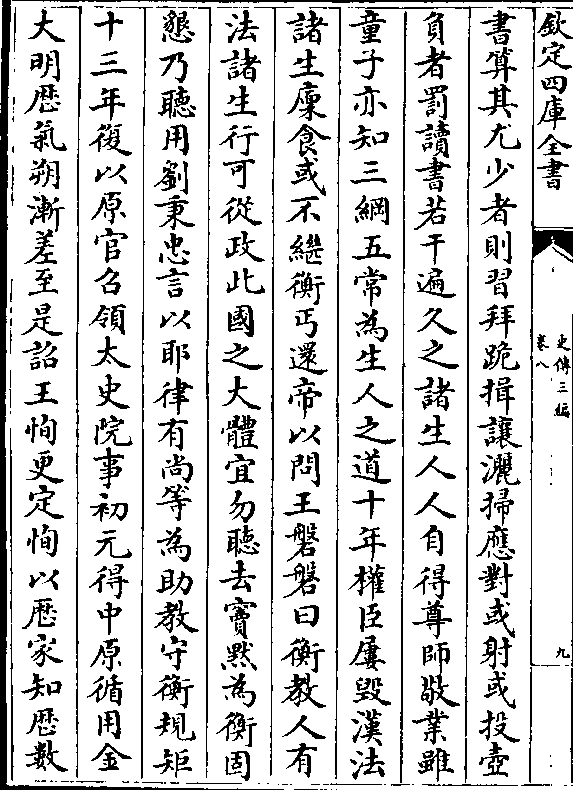 欽定四庫全書
史傳三編
卷八
九
書算其尤少者則習拜跪揖讓灑掃應對或射或投壺
負者罰讀書若干遍久之諸生人人自得尊師敬業雖
童子亦知三綱五常為生人之道十年權臣屢毀漢法
諸生廩食或不繼衡丐還帝以問王磐磐曰衡教人有
法諸生行可從政此國之大體宜勿聽去竇默為衡固
懇乃聽用劉秉忠言以耶律有尚等為助教守衡規矩
十三年復以原官召領太史院事初元得中原循用金
大明厯氣朔漸差至是詔王恂更定恂以厯家知厯數